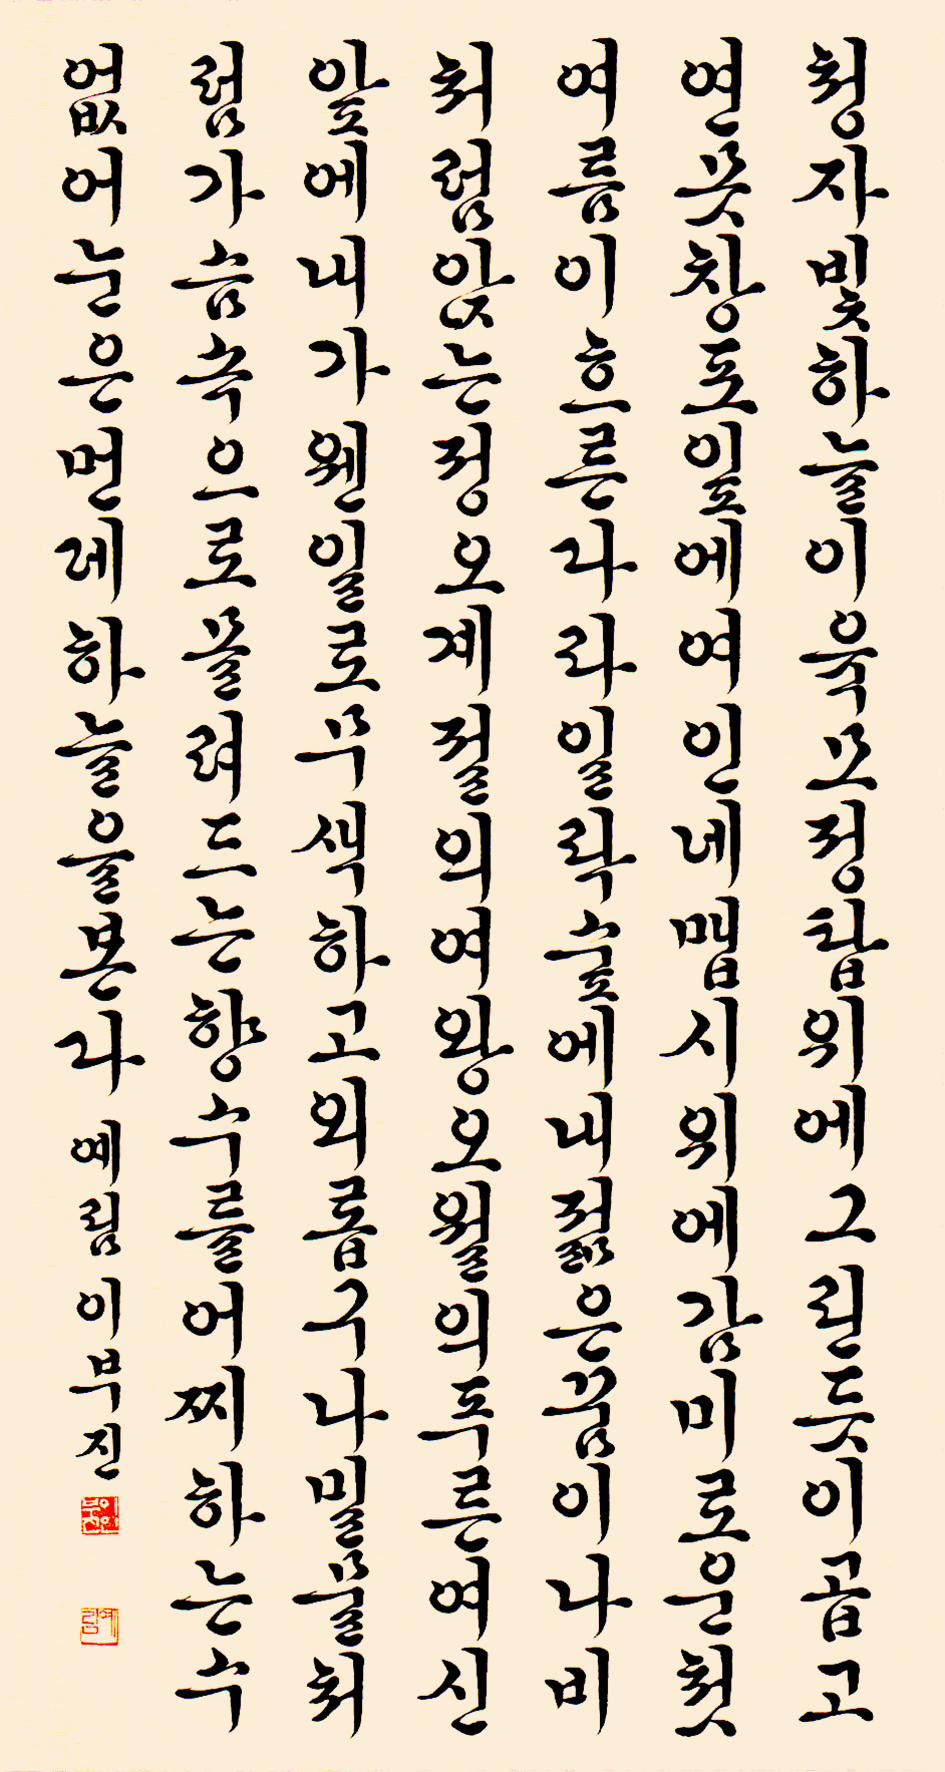 청자빛하늘이육모정탑위에그린듯이곱고
연못창포잎에여인네맵시위에감미로운첫
여름이흐른다라일락숲에내젊은꿈이나비
처럼앉는정오계절의여왕오월의푸른여신
앞에내가웬일로무색하고외롭구나밀물처
럼가슴속으로몰려드는향수를어찌하는수
없어눈은먼데하늘을본다 예림 이부진